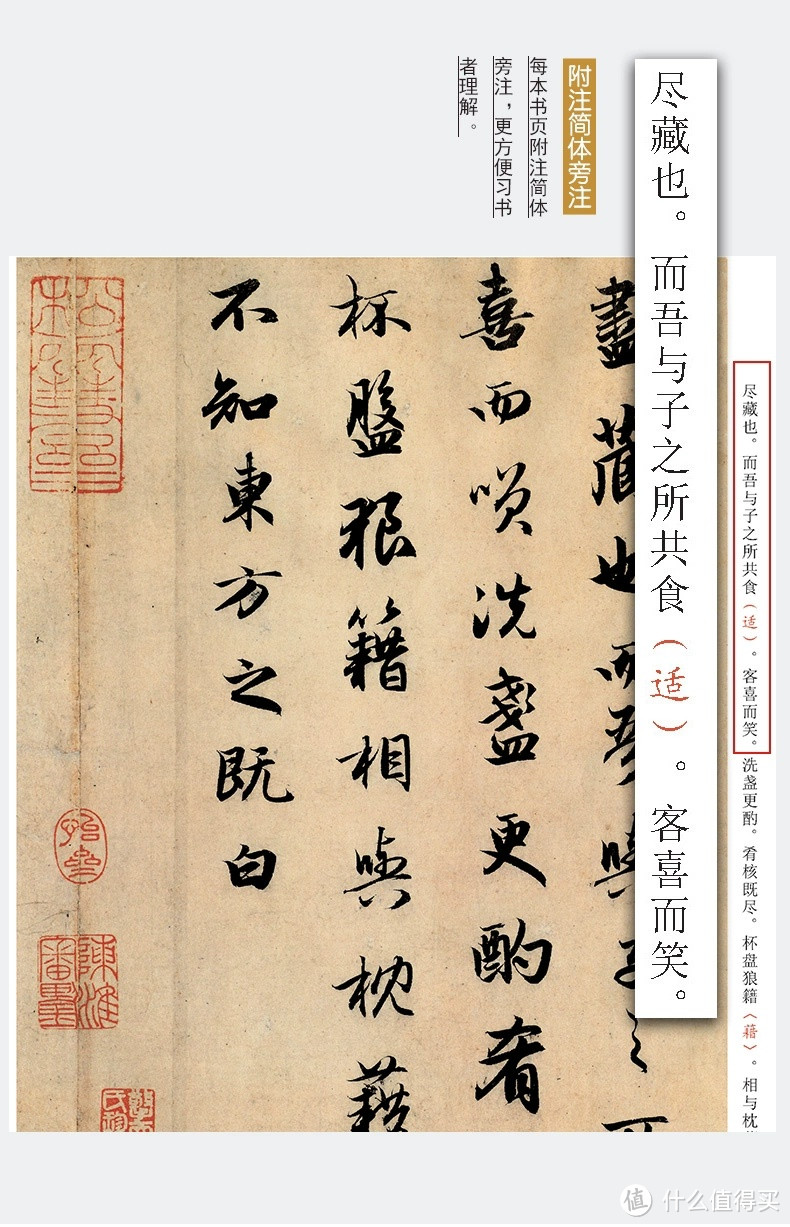 尽藏也。而吾与子之所共食（适）。客喜而笑。
附注简体旁注
每本书页附注简体
旁注，更方便习书
者理解。
尽藏也。而吾与子之所共食（适）。客喜而笑。洗盏更酌。肴核既尽。杯盘狼籍（藉）。相与枕
盡藏也而吾與子之所
喜而笑洗盞更酌肴
杯盤狼籍相與枕藉
不知東方之既白
值 什么值得买